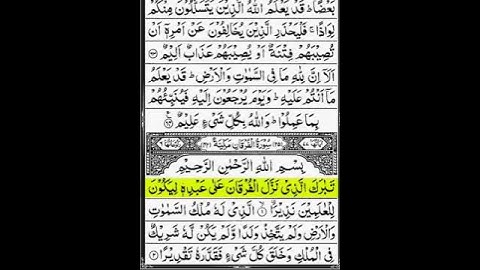 بَعْضًا ؕ قَدْ يَعْلَمُ اللّٰهُ الَّذِيْنَ يَتَسَلَّلُوْنَ مِنْكُمْ
لِوَاذًا ۚ فَلْيَحْذَرِ الَّذِيْنَ يُخَالِفُوْنَ عَنْ اَمْرِهٖۤ اَنْ
تُصِيْبَهُمْ فِتْنَةٌ اَوْ يُصِيْبَهُمْ عَذَابٌ اَلِيْمٌ ﴿۶۳﴾
اَلَاۤ اِنَّ لِلّٰهِ مَا فِى السَّمٰوٰتِ وَالْاَرْضِ ؕ قَدْ يَعْلَمُ
مَاۤ اَنْتُمْ عَلَيْهِ ؕ وَيَوْمَ يُرْجَعُوْنَ اِلَيْهِ فَيُنَبِّئُهُمْ
بِمَا عَمِلُوْا ؕ وَاللّٰهُ بِكُلِّ شَىْءٍ عَلِيْمٌ ﴿۶۴﴾
سُوْرَةُ الْفُرْقَانِ مَكِّيَّةٌ
بِسْمِ اللّٰهِ الرَّحْمٰنِ الرَّحِيْمِ
تَبٰرَكَ الَّذِىْ نَزَّلَ الْفُرْقَانَ عَلٰى عَبْدِهٖ لِيَكُوْنَ
لِلْعٰلَمِيْنَ نَذِيْرًا ﴿۱﴾ الَّذِىْ لَهٗ مُلْكُ السَّمٰوٰتِ
وَالْاَرْضِ وَلَمْ يَتَّخِذْ وَلَدًا وَّلَمْ يَكُنْ لَّهٗ شَرِيْكٌ
فِى الْمُلْكِ وَخَلَقَ كُلَّ شَىْءٍ فَقَدَّرَهٗ تَقْدِيْرًا ﴿۲﴾